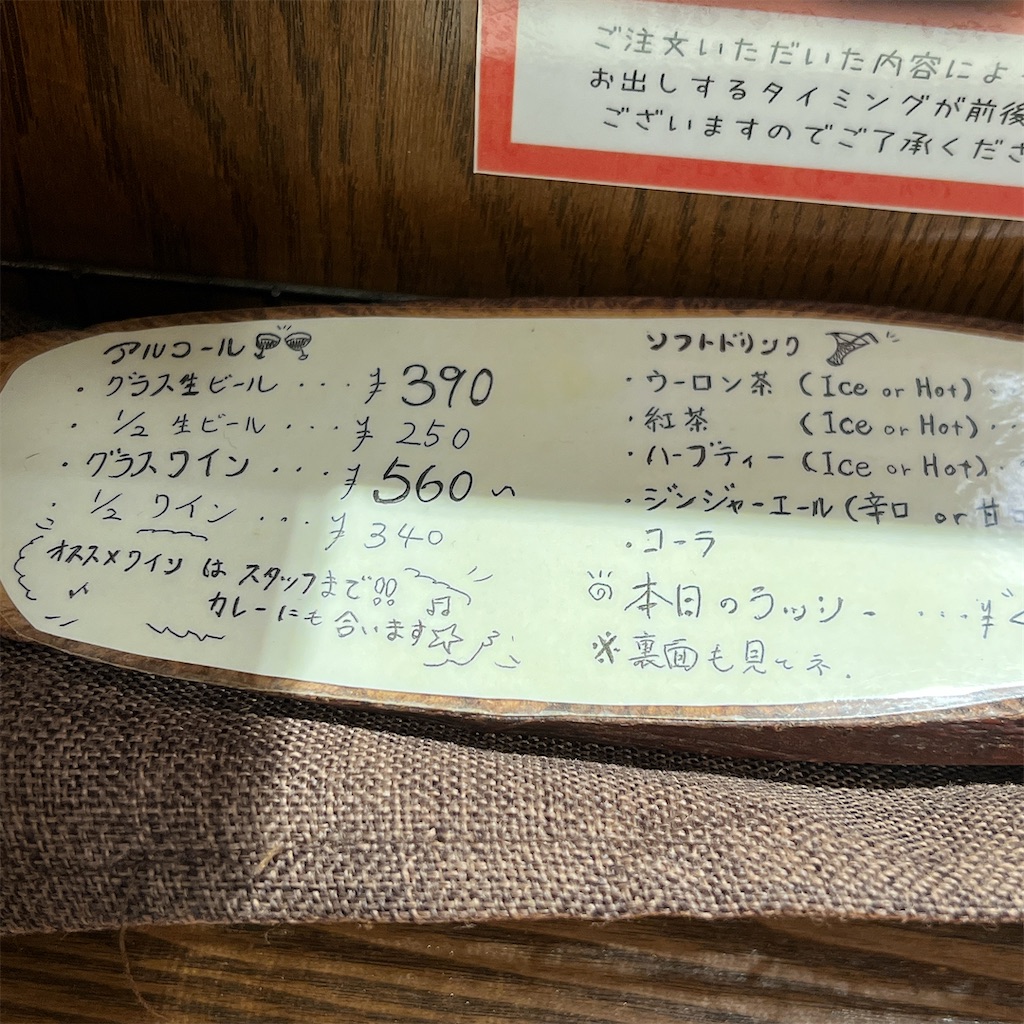 ご注文いただいた内容によ
お出しするタイミングが前後
ございますのでご了承くださ
アルコール
・グラス生ビール ・・・ ¥390
・1/2 生ビール ・・・ ¥250
・グラスワイン ・・・ ¥560〜
・1/2 ワイン ・・・ ¥340
オススメワインは スタッフまで!!
カレーにも合います☆
ソフトドリンク
・ウーロン茶 (Ice or Hot)・
・紅茶 (Ice or Hot)・・
・ハーブティー (Ice or Hot)・
・ジンジャーエール (辛口 or 甘
・コーラ
本日のラッシー ・・・・¥
※裏面も見てネ.